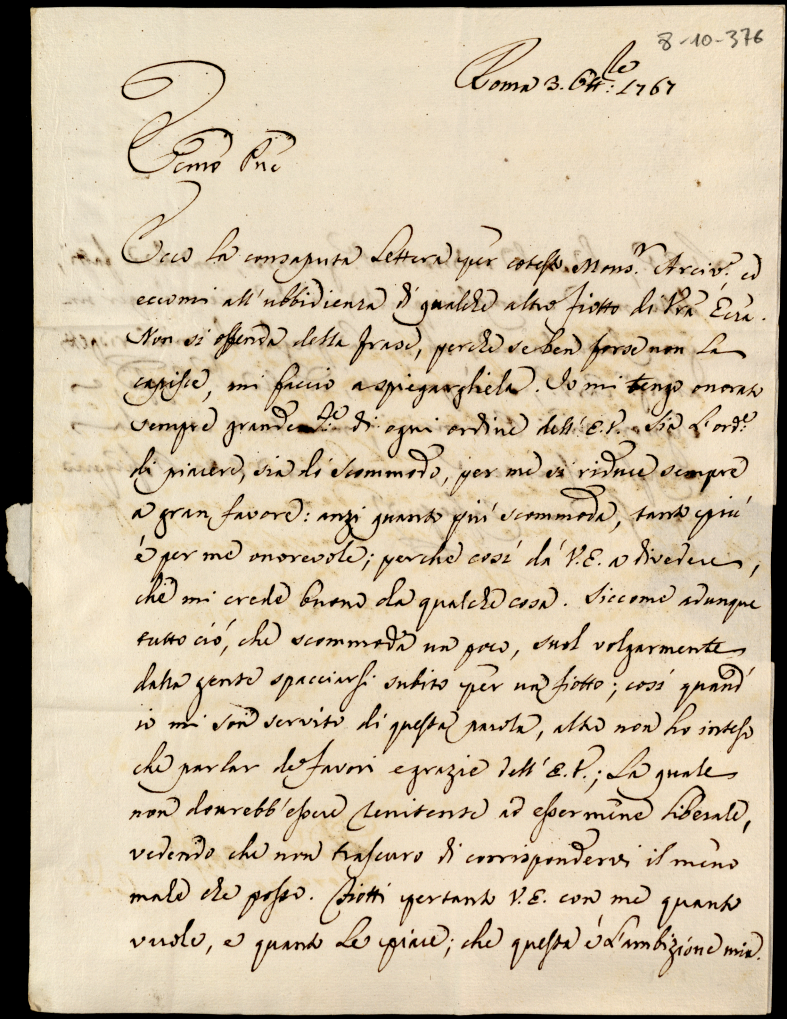 8-10-376
Roma 3. Ott:le 1767
Ecmo Pne
Ecco la consaputa Lettera per cotesto Monsr. Arcivo. ed
eccomi all'ubbidienza di qualche altro fiotto di Vra Ecza.
Non si offenda della frase, perche se ben forse non la
capisce, mi faccio a spiegarghiela. Io mi tengo onorato
sempre di ogni ordine dell'E.V. Sia l'orde
di piacere, sia di scommodo, per me si riduce sempre
a gran favore: anzi quanto piú scommoda, tanto piú
é per me onorevole; perche cosí dá V.E. a divedere,
che mi crede buono da qualche cosa. Siccome adunque
tutto ció, che scommoda un poco, suol volgarmente
dalla gente spacciarsi subito per un fiotto; cosí quand'
io mi son servito di questa parola, altro non ho inteso
che parlar de favori e grazie dell'E.V.; La quale
non dovrebb'essere renitente ad essermene liberale,
vedendo che non trascuro di corrispondervi il meno
male che posso. Fiotti pertanto V.E. con me quanto
vuole, e quanto Le piace; che questa é l'ambizione mia.